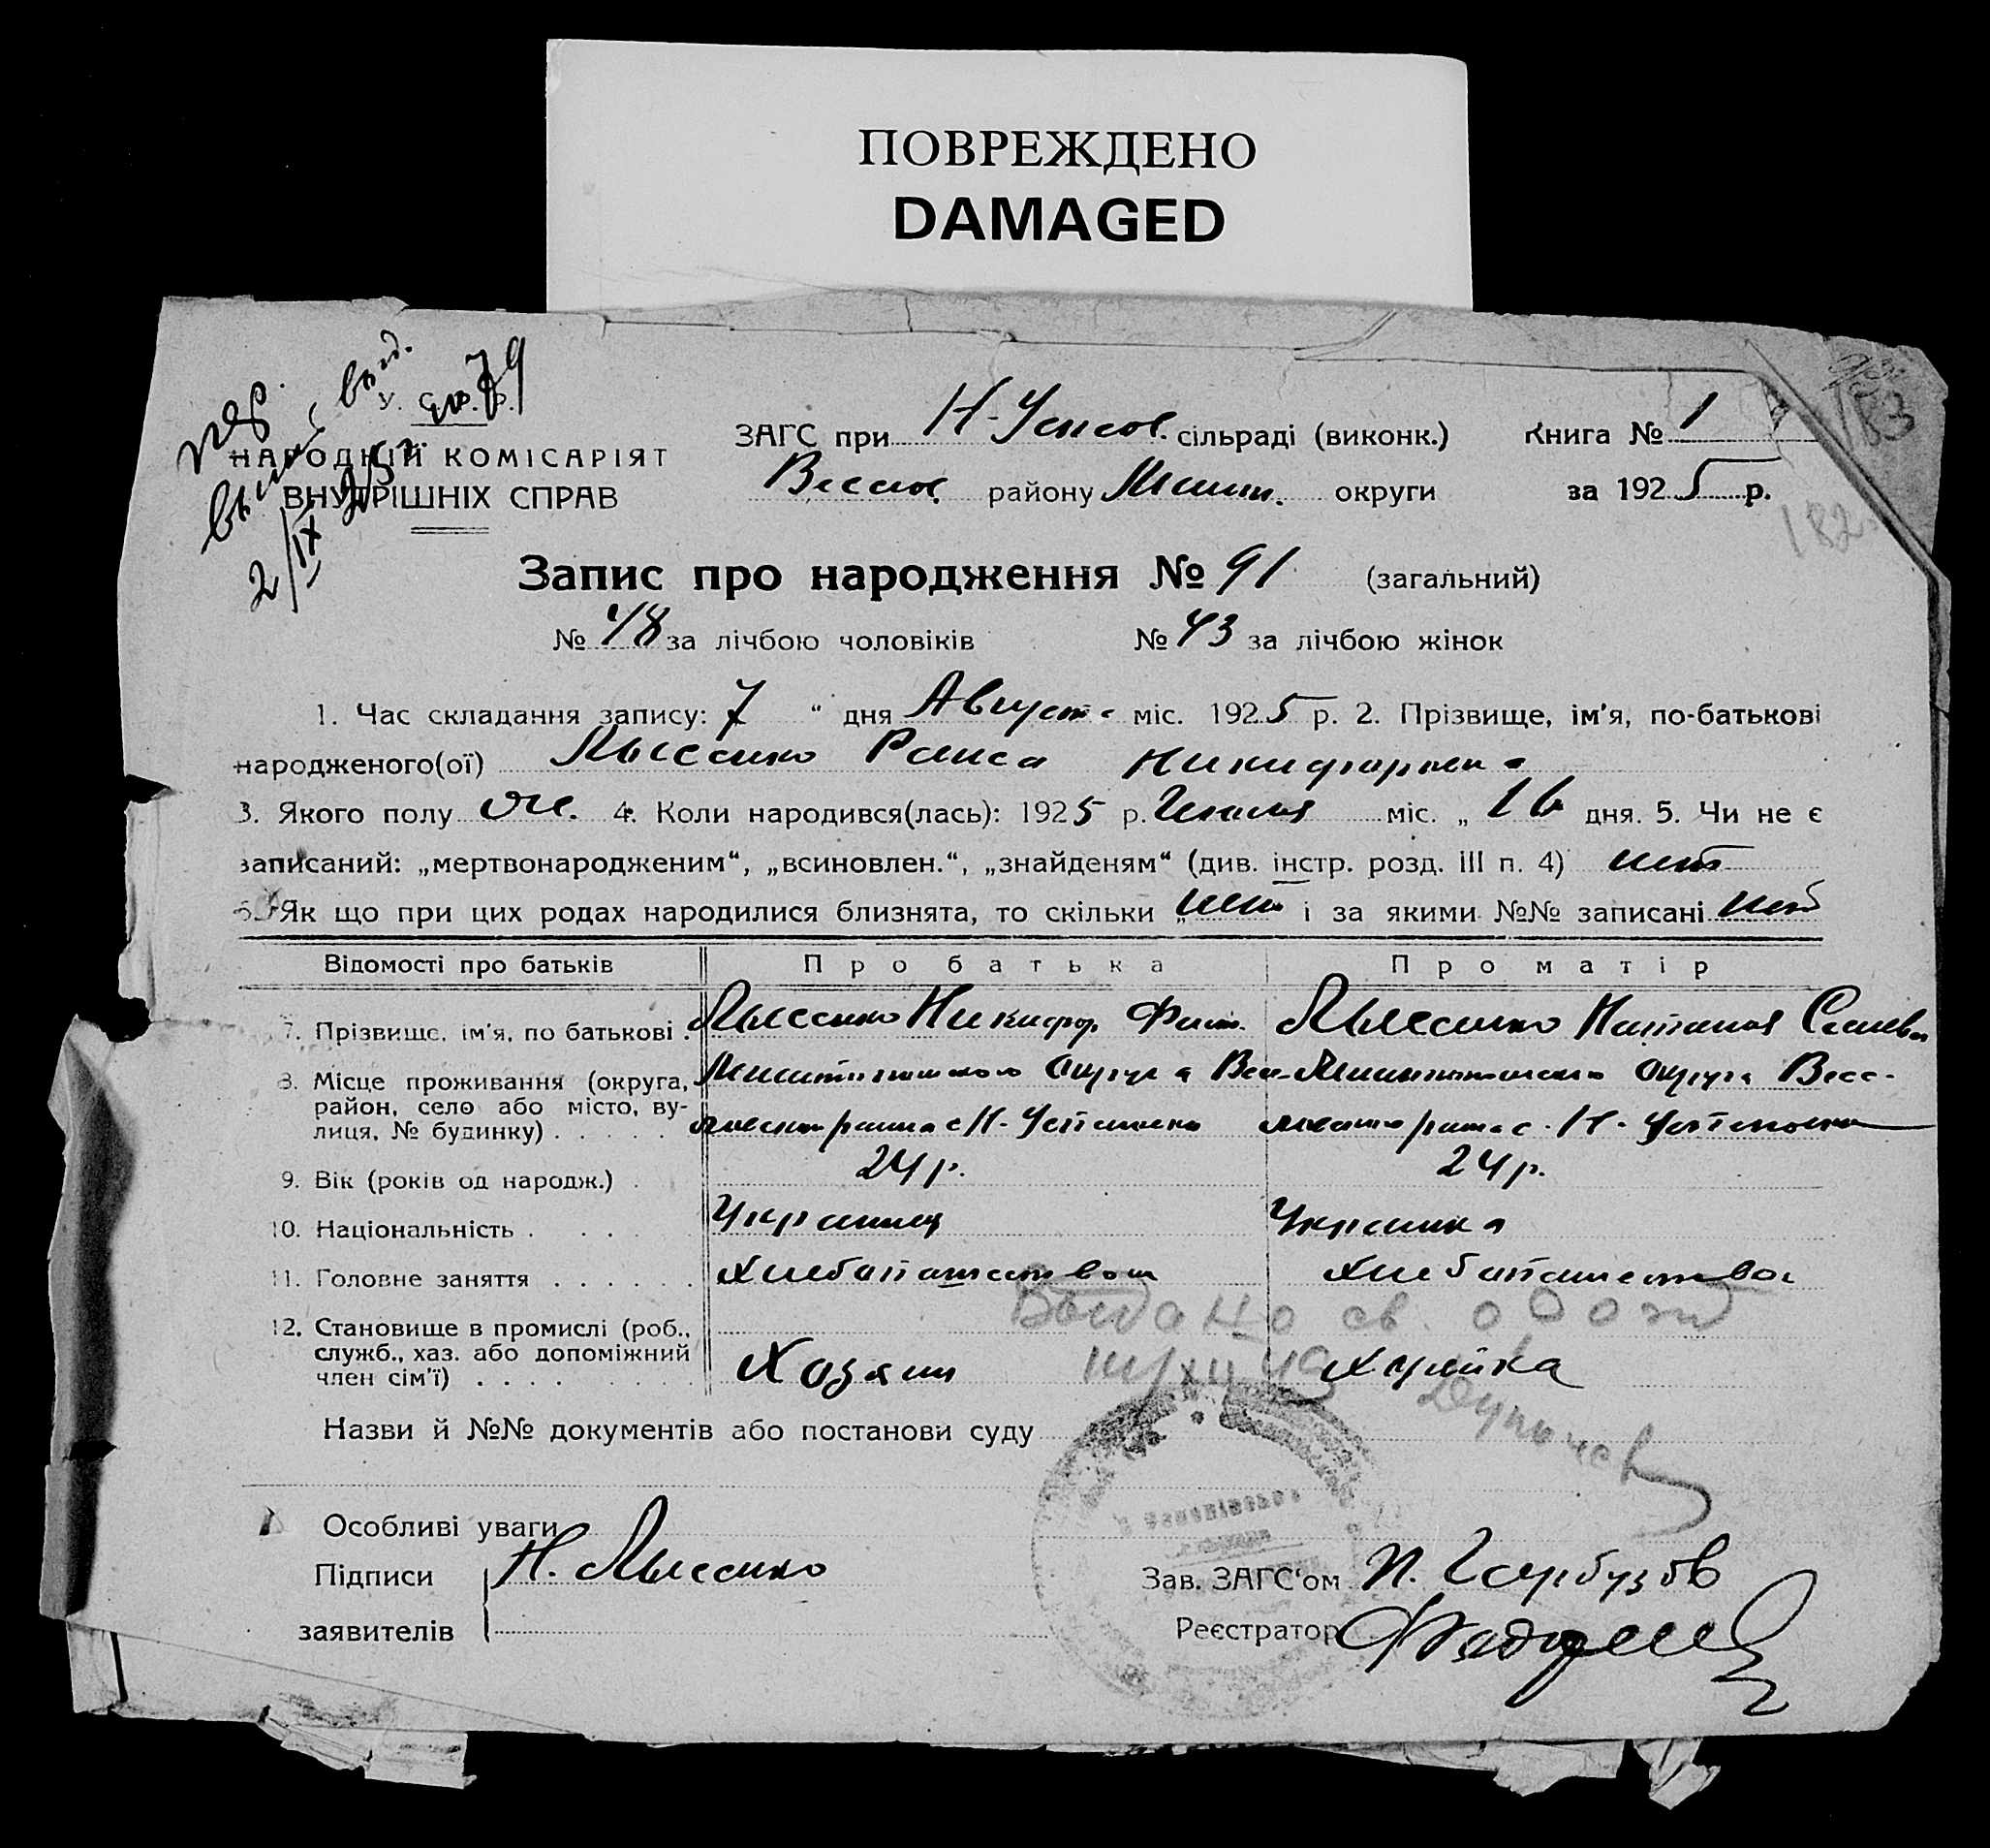 ПОВРЕЖДЕНО
DAMAGED
У. С. Р. Р.
НАРОДНІЙ КОМІСАРІЯТ
ВНУТРІШНІХ СПРАВ
2/IX
ЗАГС при сільраді (виконк.)
району округи
Книга № 1
за 1925 р.
183
182
Запис про народження № 91 (загальний)
№ 48 за лічбою чоловіків № 43 за лічбою жінок
1. Час складання запису: 7 " дня Августа міс. 1925 р. 2. Прізвище, ім'я, по-батькові
народженого(ої) Лысенко Раиса Никифоровна
3. Якого полу ж. 4. Коли народився(лась): 1925 р. міс. „ 16 дня. 5. Чи не є
записаний: „мертвонародженим“, „всиновлен.“, „знайденям“ (див. інстр. розд. III п. 4) нет
6. Як що при цих родах народилися близнята, то скільки „ нет і за якими №№ записані нет
Відомості про батьків Про батька Про матір
7. Прізвище, ім'я, по батькові . Лысенко Никифор Лысенко Наталия
8. Місце проживання (округа, округа округа
район, село або місто, ву-
лиця, № будинку) . . . . .
9. Вік (років од народж.) . 24 р. 24 р.
10. Національність . . . . Украинец Украинка
11. Головне заняття . . . . . . Хлебопашество Хлебопашество
Выдано св. о рожд
12. Становище в промислі (роб.,
служб., хаз. або допоміжний
член сім'ї) . . . . . . . . Хозяин
Назви й №№ документів або постанови суду
Особливі уваги
Підписи Н. Лысенко
заявителів
Зав. ЗАГС'ом П. Гарбузов
Реєстратор